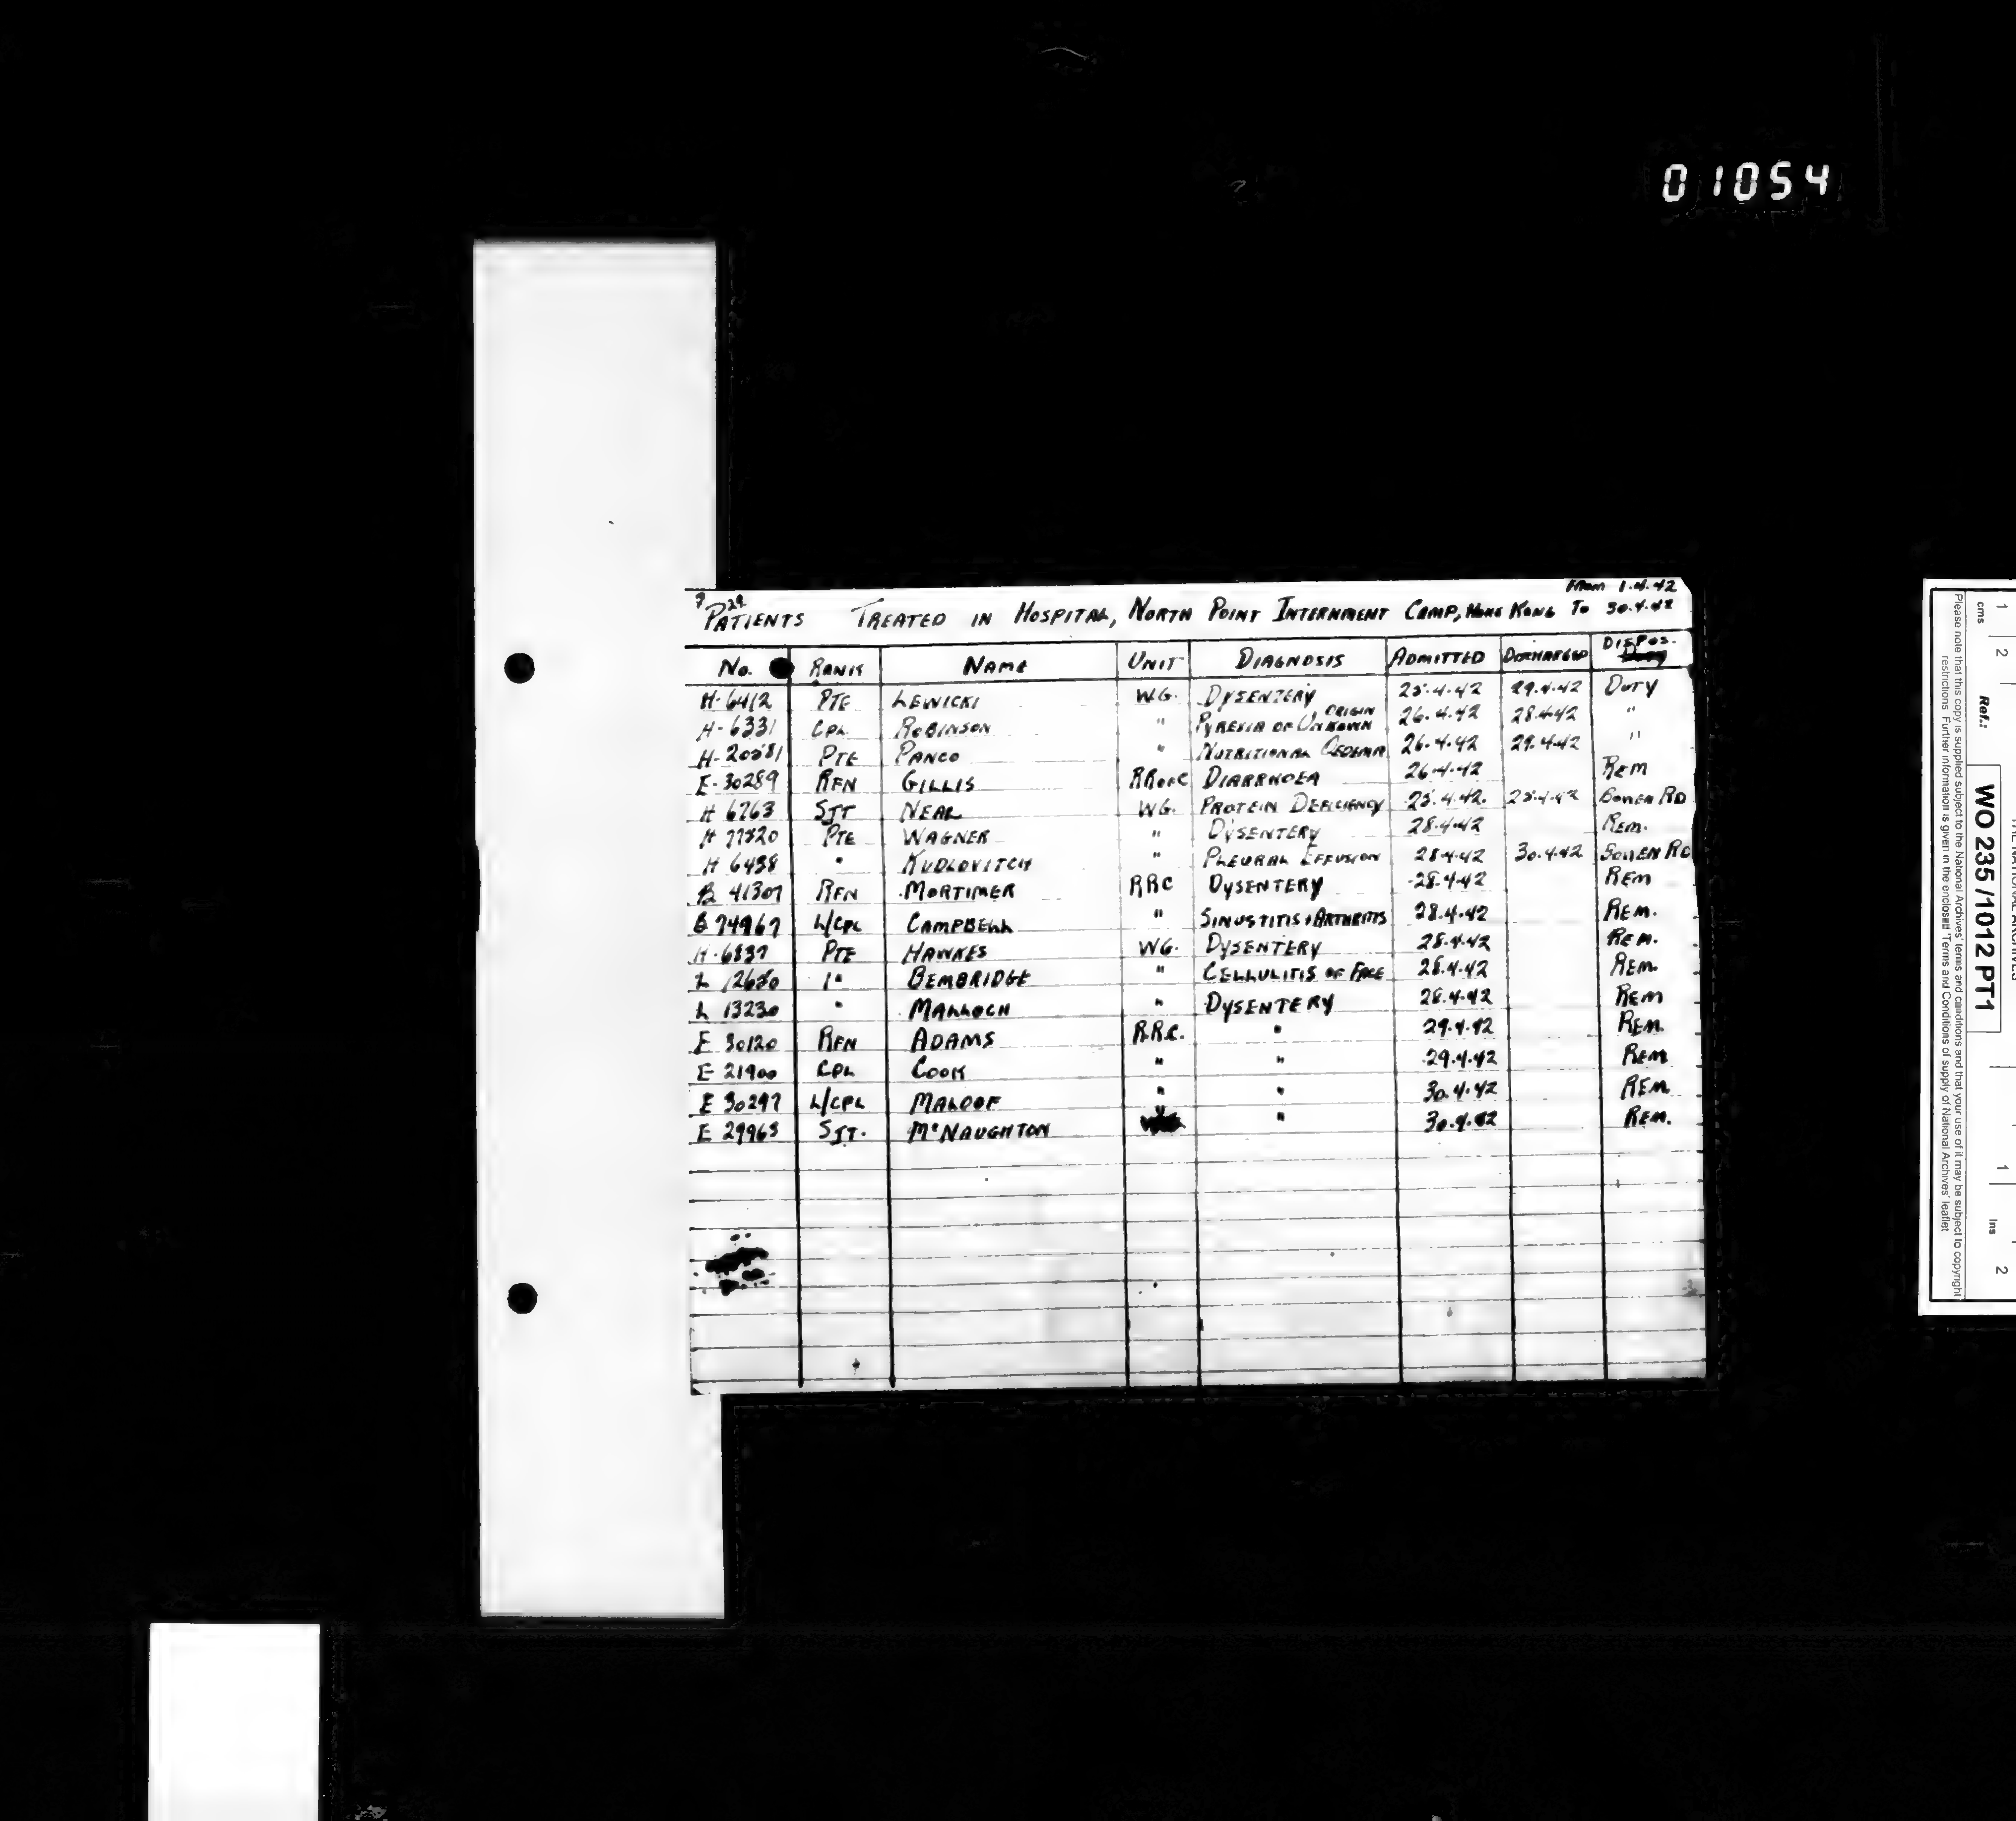 01054
From 1.4.42
7 29.
PATIENTS TREATED IN HOSPITAL, NORTH POINT INTERNMENT CAMP, HONG KONG To 30.4.42
No. RANK NAME UNIT DIAGNOSIS ADMITTED DISCHARGED DISPOS.
H-6412 PTE LEWICKI W.G. DYSENTERY 25.4.42 29.4.42 DUTY
H-6331 CPL ROBINSON " PYREXIA OF UNKOWN ORIGIN 26.4.42 28.4.42 "
H-20581 PTE PANCO " NUTRITIONAL OEDEMA 26.4.42 29.4.42 "
E-30289 RFN GILLIS RRofC DIARRHOEA 26.4.42 REM
H 6763 SJT NEAL WG. PROTEIN DEFICIENCY 25.4.42. 25.4.42 BOWEN RD
H 77520 PTE WAGNER " DYSENTERY 28.4.42 REM.
H 6438 " KUDLOVITCH " PLEURAL EFFUSION 28.4.42 30.4.42 BOWEN RD
B 41307 RFN MORTIMER RRC DYSENTERY 28.4.42 REM
B 74967 L/CPL CAMPBELL " SINUSTITIS & ARTHRITIS 28.4.42 REM.
H-6837 PTE HAWKES WG. DYSENTERY 28.4.42 REM.
L 12630 " BEMBRIDGE " CELLULITIS OF FACE 28.4.42 REM
L 13230 " MALLOCH " DYSENTERY 28.4.42 REM
E 30120 RFN ADAMS R.R.C. " 29.4.42 REM.
E 21900 CPL COOK " " 29.4.42 REM
E 30297 L/CPL MALOOF " " 30.4.42 REM
E 29963 SJT. McNAUGHTON " 30.4.42 REM.
THE NATIONAL ARCHIVES
Ref.: WO 235 /1012 PT1
cms 1 2 Ins 1 2
Please note that this copy is supplied subject to the National Archives' terms and conditions and that your use of it may be subject to copyright
restrictions. Further information is given in the enclosed 'Terms and Conditions of supply of National Archives' leaflet